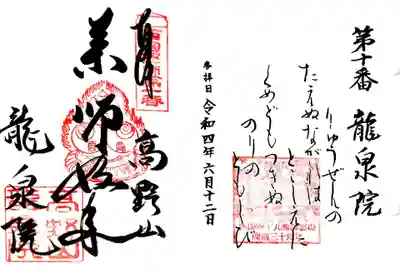 第十番 龍泉院
りゅうせんの
たえぬながれは
とこしえに
くめどもつきぬ
のりの
ともしび
参拝日 令和四年 六月十二日
高野山
薬師如来
龍泉院